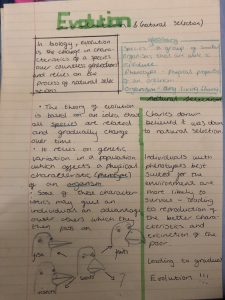 Evolution
& (natural selection)
In biology, evolution
is the change in charac-
teristics of a species
over countless generations
and relies on the
process of natural sele-
ction.
glossary
Species - a group of similar
organisms that are able to
reproduce
Phenotype - physical properties
of an organism
Organism - any living thing
• The theory of evolution
is based on an idea that
all species are related
and gradually change
over time.
• It relies on genetic
variation in a population
which affects a physical
characteristic (phenotype)
of an organism.
• Some of these character-
istics may give an
individual an advantage
over others which they
then pass on
natural selection
Charles Darwin
believed it was down
to natural selection
Individuals with
phenotypes best
suited for the
environment are
more likely to
survive - leading
to reproduction of
the better chara-
cteristics and
extinction of the
poor.
Leading to gradual
Evolution !!!
fish
insects
seeds
?